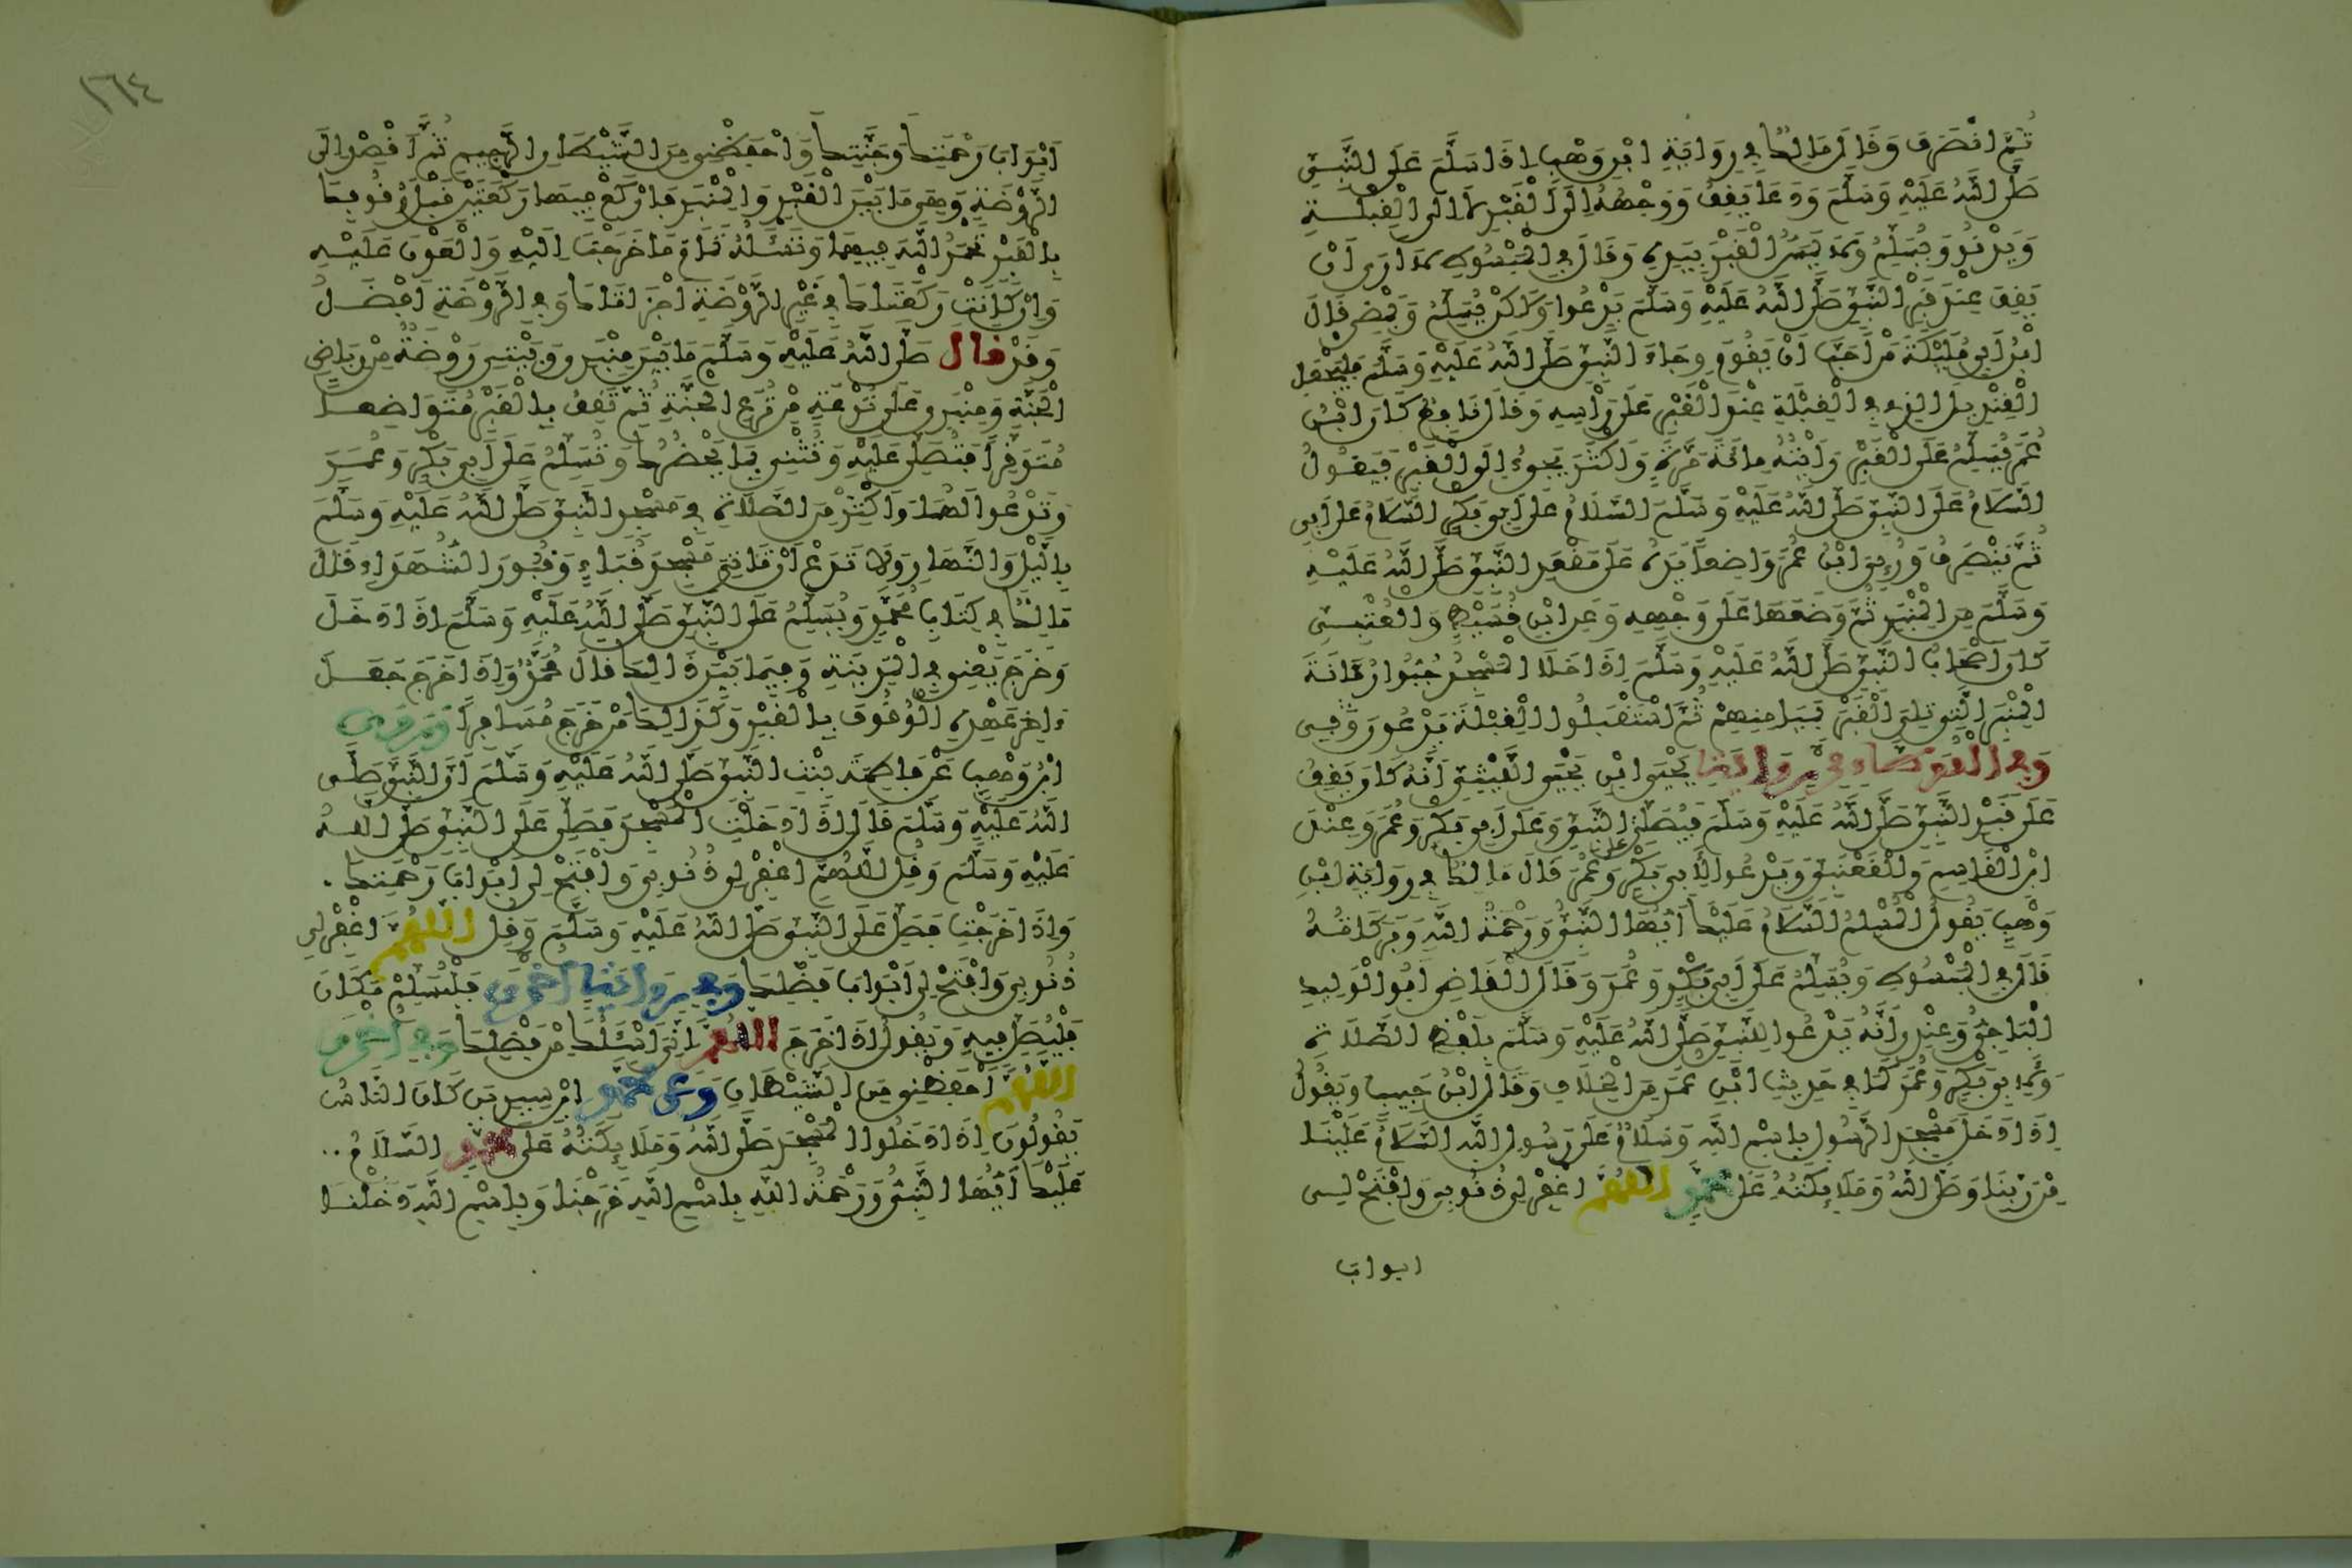 ثُمَّ انْصَرَفَ وَقَالَ مَالِكٌ فِي رِوَايَةِ ابْنِ وَهْبٍ إِذَا سَلَّمَ عَلَى النَّبِيِّ
صَلَّى اللَّهُ عَلَيْهِ وَسَلَّمَ وَدَعَا يَقِفُ وَوَجْهُهُ إِلَى الْقَبْرِ لَا إِلَى الْقِبْلَةِ
وَيَدْنُو وَيُسَلِّمُ وَلَا يَمَسُّ الْقَبْرَ بِيَدِهِ وَقَالَ فِي الْمَبْسُوطِ لَا أَرَى أَنْ
يَقِفَ عِنْدَ قَبْرِ النَّبِيِّ صَلَّى اللَّهُ عَلَيْهِ وَسَلَّمَ يَدْعُوا وَلَكِنْ يُسَلِّمُ وَيَمْضِي قَالَ
ابْنُ أَبِي مُلَيْكَةَ مَنْ أَحَبَّ أَنْ يَقُومَ وِجَاهَ النَّبِيِّ صَلَّى اللَّهُ عَلَيْهِ وَسَلَّمَ فَلْيَجْعَلِ
الْقِنْدِيلَ الَّذِي فِي الْقِبْلَةِ عِنْدَ الْقَبْرِ عَلَى رَأْسِهِ وَقَالَ نَافِعٌ كَانَ ابْنُ
عُمَرَ يُسَلِّمُ عَلَى الْقَبْرِ رَأَيْتُهُ مِائَةَ مَرَّةٍ وَأَكْثَرَ يَجِيءُ إِلَى الْقَبْرِ فَيَقُولُ
السَّلَامُ عَلَى النَّبِيِّ صَلَّى اللَّهُ عَلَيْهِ وَسَلَّمَ السَّلَامُ عَلَى أَبِي بَكْرٍ السَّلَامُ عَلَى أَبِي
ثُمَّ يَنْصَرِفُ وَرُئِيَ ابْنُ عُمَرَ وَاضِعاً يَدَهُ عَلَى مَقْعَدِ النَّبِيِّ صَلَّى اللَّهُ عَلَيْهِ
وَسَلَّمَ مِنَ الْمِنْبَرِ ثُمَّ وَضَعَهَا عَلَى وَجْهِهِ وَعَنِ ابْنِ قُسَيْطٍ وَالْعُتْبِيِّ
كَانَ أَصْحَابُ النَّبِيِّ صَلَّى اللَّهُ عَلَيْهِ وَسَلَّمَ إِذَا خَلَا الْمَسْجِدُ جَسُّوا رُمَّانَةَ
الْمِنْبَرِ الَّتِي تَلِي الْقَبْرَ بِمَيَامِنِهِمْ ثُمَّ اسْتَقْبَلُوا الْقِبْلَةَ يَدْعُونَ وَفِي
وَفِي الْمُوَطَّا فِي رِوَايَةِ يَحْيَى ابْنِ يَحْيَى اللَّيْثِيِّ أَنَّهُ كَانَ يَقِفُ
عَلَى قَبْرِ النَّبِيِّ صَلَّى اللَّهُ عَلَيْهِ وَسَلَّمَ فَيُصَلِّي عَلَى النَّبِيِّ وَعَلَى أَبِي بَكْرٍ وَعُمَرَ وَعِنْدَ
ابْنِ الْقَاسِمِ وَالْقَعْنَبِيِّ وَيَدْعُوا لِأَبِي بَكْرٍ وَعُمَرَ قَالَ مَالِكٌ فِي رِوَايَةِ ابْنِ
وَهْبٍ يَقُولُ الْمُسَلِّمُ السَّلَامُ عَلَيْكَ أَيُّهَا النَّبِيُّ وَرَحْمَةُ اللَّهِ وَبَرَكَاتُهُ
قَالَ فِي الْمَبْسُوطِ وَيُسَلِّمُ عَلَى أَبِي بَكْرٍ وَعُمَرَ وَقَالَ الْقَاضِي أَبُو الْوَلِيدِ
الْبَاجِيُّ وَعِنْدِي أَنَّهُ يَدْعُوا لِلنَّبِيِّ صَلَّى اللَّهُ عَلَيْهِ وَسَلَّمَ بِلَفْظِ الصَّلَاةِ
وَلِأَبِي بَكْرٍ وَعُمَرَ كَمَا فِي حَدِيثِ ابْنِ عُمَرَ مِنَ الْخِلَافِ وَقَالَ ابْنُ حَبِيبٍ وَيَقُولُ
إِذَا دَخَلَ مَسْجِدَ الرَّسُولِ بِاسْمِ اللَّهِ وَسَلَامٌ عَلَى رَسُولِ اللَّهِ السَّلَامُ عَلَيْنَا
مِنْ رَبِّنَا وَصَلَّى اللَّهُ وَمَلَائِكَتُهُ عَلَى مُحَمَّدٍ اللَّهُمَّ اغْفِرْ لِي ذُنُوبِي وَافْتَحْ لِي
ابواب
١٦٤
أَبْوَابَ رَحْمَتِكَ وَجَنَّتِكَ وَاحْفَظْنِي مِنَ الشَّيْطَانِ الرَّجِيمِ ثُمَّ اقْصِدْ إِلَى
الرَّوْضَةِ وَهِيَ مَا بَيْنَ الْقَبْرِ وَالْمِنْبَرِ فَارْكَعْ فِيهَا رَكْعَتَيْنِ قَبْلَ وُقُوفِكَ
بِالْقَبْرِ تَحْمَدُ اللَّهَ فِيهِمَا وَتَسْأَلُهُ تَمَامَ مَا خَرَجْتَ إِلَيْهِ وَالْعَوْنَ عَلَيْهِ
وَإِنْ كَانَتْ رَكْعَتَاكَ فِي غَيْرِ الرَّوْضَةِ أَجْزَأَتَاكَ وَفِي الرَّوْضَةِ أَفْضَلُ
وَقَدْ قَالَ صَلَّى اللَّهُ عَلَيْهِ وَسَلَّمَ مَا بَيْنَ مِنْبَرِي وَبَيْتِي رَوْضَةٌ مِنْ رِيَاضِ
الْجَنَّةِ وَمِنْبَرِي عَلَى تُرْعَةٍ مِنْ تُرَعِ الْجَنَّةِ ثُمَّ تَقِفُ بِالْقَبْرِ مُتَوَاضِعاً
مُتَوَقِّراً فَتُصَلِّي عَلَيْهِ وَتُثْنِي بِمَا يَحْضُرُكَ وَتُسَلِّمُ عَلَى أَبِي بَكْرٍ وَعُمَرَ
وَتَدْعُوا لَهُمَا وَأَكْثِرْ مِنَ الصَّلَاةِ فِي مَسْجِدِ النَّبِيِّ صَلَّى اللَّهُ عَلَيْهِ وَسَلَّمَ
بِاللَّيْلِ وَالنَّهَارِ وَلَا تَدَعْ أَنْ تَأْتِيَ مَسْجِدَ قُبَاءٍ وَقُبُورَ الشُّهَدَاءِ قَالَ
مَالِكٌ فِي كِتَابِ مُحَمَّدٍ وَيُسَلِّمُ عَلَى النَّبِيِّ صَلَّى اللَّهُ عَلَيْهِ وَسَلَّمَ إِذَا دَخَلَ
وَخَرَجَ يَعْنِي فِي الْمَدِينَةِ وَفِيمَا بَيْنَ ذَالِكَ قَالَ مُحَمَّدٌ وَإِذَا خَرَجَ جَعَلَ
ءَاخِرَ عَهْدِهِ الْوُقُوفَ بِالْقَبْرِ وَكَذَالِكَ مَنْ خَرَجَ مُسَافِراً وَرَوَى
ابْنُ وَهْبٍ عَنْ فَاطِمَةَ بِنْتِ النَّبِيِّ صَلَّى اللَّهُ عَلَيْهِ وَسَلَّمَ أَنَّ النَّبِيَّ صَلَّى
اللَّهُ عَلَيْهِ وَسَلَّمَ قَالَ إِذَا دَخَلْتَ الْمَسْجِدَ فَصَلِّ عَلَى النَّبِيِّ صَلَّى اللَّهُ
عَلَيْهِ وَسَلَّمَ وَقُلِ اللَّهُمَّ اغْفِرْ لِي ذُنُوبِي وَافْتَحْ لِي أَبْوَابَ رَحْمَتِكَ .
وَإِذَا خَرَجْتَ فَصَلِّ عَلَى النَّبِيِّ صَلَّى اللَّهُ عَلَيْهِ وَسَلَّمَ وَقُلِ اللَّهُمَّ اغْفِرْ لِي
ذُنُوبِي وَافْتَحْ لِي أَبْوَابَ فَضْلِكَ وَفِي رِوَايَةٍ أُخْرَى فَلْيُسَلِّمْ مَكَانَ
فَلْيُصَلِّ فِيهِ وَيَقُولُ إِذَا خَرَجَ اللَّهُمَّ إِنِّي أَسْأَلُكَ مِنْ فَضْلِكَ وَفِي أُخْرَى
اللَّهُمَّ احْفَظْنِي مِنَ الشَّيْطَانِ وَعَنْ مُحَمَّدِ ابْنِ سِيرِينَ كَانَ النَّاسُ
يَقُولُونَ إِذَا دَخَلُوا الْمَسْجِدَ صَلَّى اللَّهُ وَمَلَائِكَتُهُ عَلَى مُحَمَّدٍ السَّلَامُ ..
عَلَيْكَ أَيُّهَا النَّبِيُّ وَرَحْمَةُ اللَّهِ بِاسْمِ اللَّهِ خَرَجْنَا وَبِاسْمِ اللَّهِ دَخَلْنَا